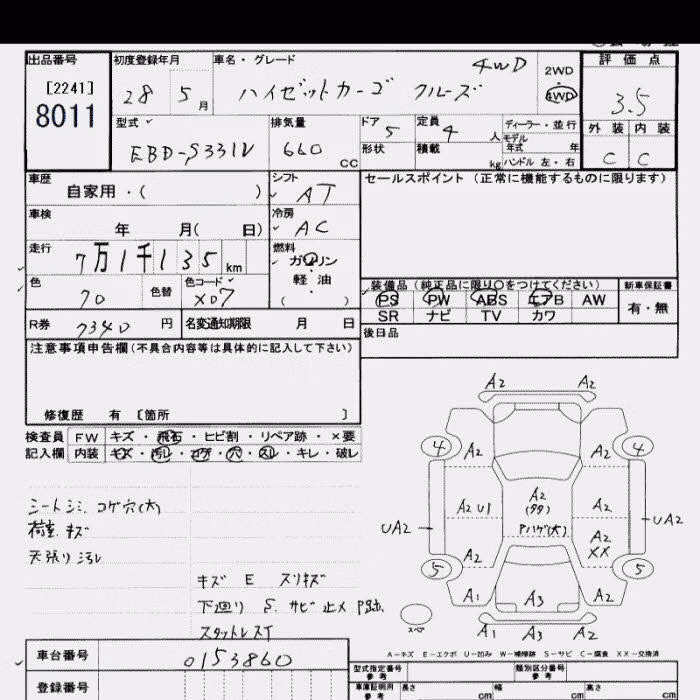 出品番号
[2241]
8011
初度登録年月
28 5月
車名・グレード
ハイゼットカーゴ クルーズ 4WD
2WD
4WD
評価点
3.5
外装 内装
C C
型式
EBD-S331V
排気量
660 CC
ドア 5
形状
定員 4 人
積載 kg
ディーラー・並行
モデル年式 年
ハンドル 左・右
車歴
自家用・( )
シフト
AT
セールスポイント(正常に機能するものに限ります)
車検
年 月( 日)
冷房
AC
走行
7万1千135 km
燃料
ガソリン
軽油
( )
色
70
色替
色コード
X07
装備品(純正品に限り〇をつけてください)
新車保証書
PS PW ABS エアB AW
SR ナビ TV カワ
有・無
R券
7340 円
名変通知期限 月 日
後日品
注意事項申告欄(不具合内容等は具体的に記入して下さい)
修復歴 有 [箇所 ]
検査員 FW キズ・飛石・ヒビ割・リペア跡・×要
記入欄 内装 キズ・汚レ・コゲ・穴・スレ・キレ・破レ
シートシミ、コゲ穴(大)
荷室、キズ
天張り汚レ
キズ E スリキズ
下廻り S. サビ止メ P跡
スタットレスT
A2 A2
4 4
A2
A2 U1
A2
(タタ)
A2
UA2
UA2
Pハゲ(大)
A2
XX
A2
5 5
A1 A3 A2
スペア
A1 A3 A2
A-キズ E-エクボ U-凹み W-補修跡 S-サビ C-腐食 XX-交換済
車台番号
0153860
登録番号
型式指定番号
参考
類別区分番号
参考
車庫証明用
参考
長さ cm
幅 cm
高さ cm